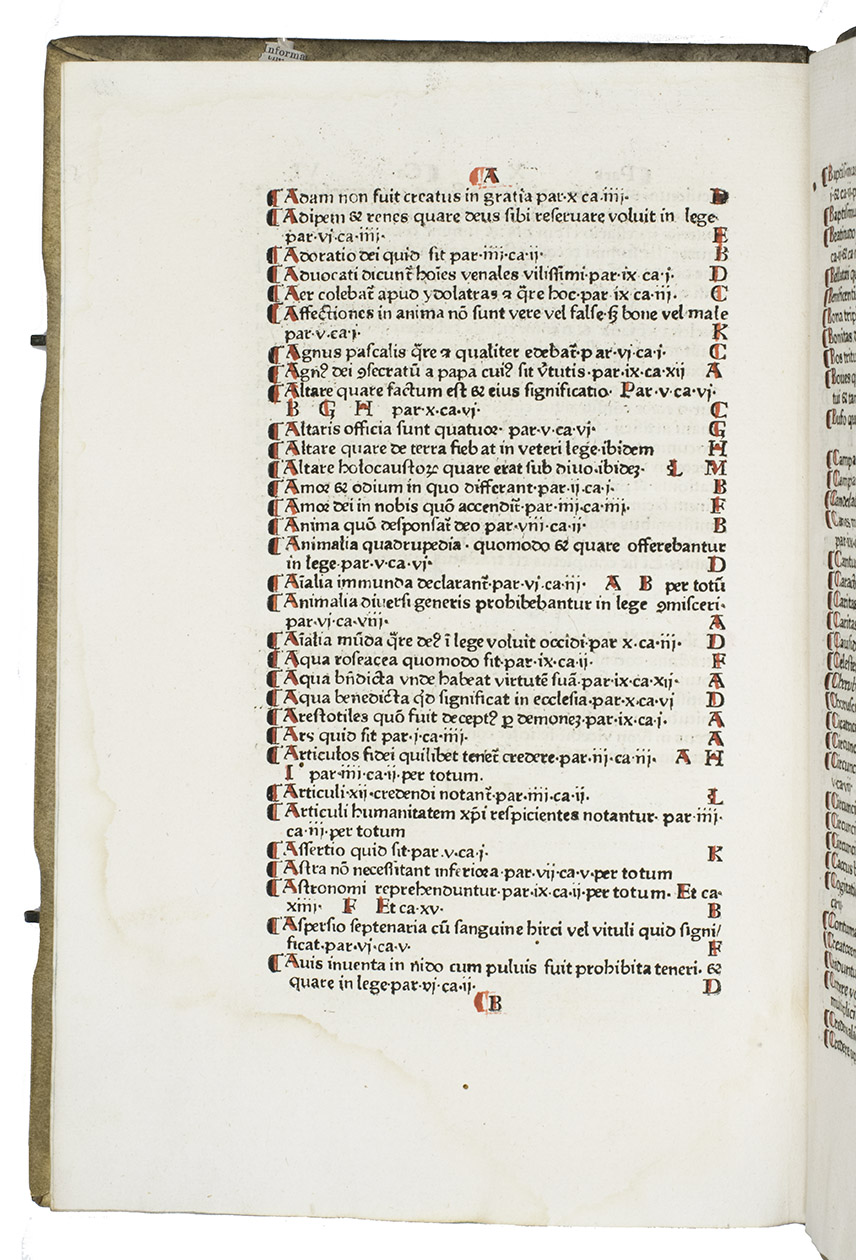 Informa
A
Adam non fuit creatus in gratia par·x ca·iiij· D
Adipem & renes quare deus sibi reseruare voluit in lege·
par·vj·ca·iiij· E
Adoratio dei quid sit par·iiij·ca·ij· B
Aduocati dicunt̃ hoĩes venales vilissimi·par·ix ca·j· D
Aer colebat̃ apud ydolatras ⁊ q̃re hoc·par ix ca·iij· C
Affectiones in anima nõ sunt vere vel false·sꝫ bone vel male
par·v·ca·j· K
Agnus pascalis q̃re ⁊ qualiter edebat̃·p ar·vj·ca·j· C
Agnꝰ dei ꝯsecratũ a papa cuiꝰ sit ṽtutis·par·ix·ca·xij A
Altare quare factum est & eius significatio· Par·v·ca·vj·
B G H par·x·ca·vj· C
Altaris officia sunt quatuoꝛ· par·v·ca·vj· G
Altare quare de terra fieb at in veteri lege·ibidem H
Altare holocaustoꝝ quare erat sub diuo·ibideꝫ· L M
Amoꝛ & odium in quo differant·par·ij·ca·j· B
Amoꝛ dei in nobis quõ accendit̃·par·iiij·ca·iiij· F
Anima quõ desponsat̃ deo par·viij·ca·ij· B
Animalia quadrupedia · quomodo & quare offerebantur
in lege·par·v·ca·vj· D
Aĩalia immunda declarant̃·par·vj·ca·iij· A B per totũ
Animalia diuersi generis prohibebantur in lege ꝯmisceri·
par·vj·ca·viij· A
Aĩalia mũda q̃re deꝰ ĩ lege voluit occidi·par x·ca·iij· D
Aqua roseacea quomodo fit·par·ix·ca·ij· F
Aqua bñdicta vnde habeat virtutẽ suã·par·ix·ca·xij· A
Aqua benedicta qͥd significat in ecclesia·par·x·ca·vj D
Arestotiles quõ fuit deceptꝰ ꝑ demoneꝫ·par·ix·ca·j· A
Ars quid sit par·j·ca·iiij· A
Articulos fidei quilibet tenet̃ credere·par·iij·ca·iij· A H
I par·iiij·ca·ij·per totum.
Articuli·xij·credendi notant̃·par·iiij·ca·ij· L
Articuli humanitatem xp̃i respicientes notantur· par·iiij·
ca·iij·per totum
Assertio quid sit·par·v·ca·j· K
Astra nõ necessitant inferioꝛa·par·vij·ca·v·per totum
Astronomi reprehenduntur·par·ix·ca·ij·per totum· Et ca·
xiiij· F Et ca·xv· B
Aspersio septenaria cũ sanguine hirci vel vituli quid signi/
ficat·par·vj·ca·v· F
Auis inuenta in nido cum puluis fuit prohibita teneri· &
quare in lege·par·vj·ca·ij· D
B